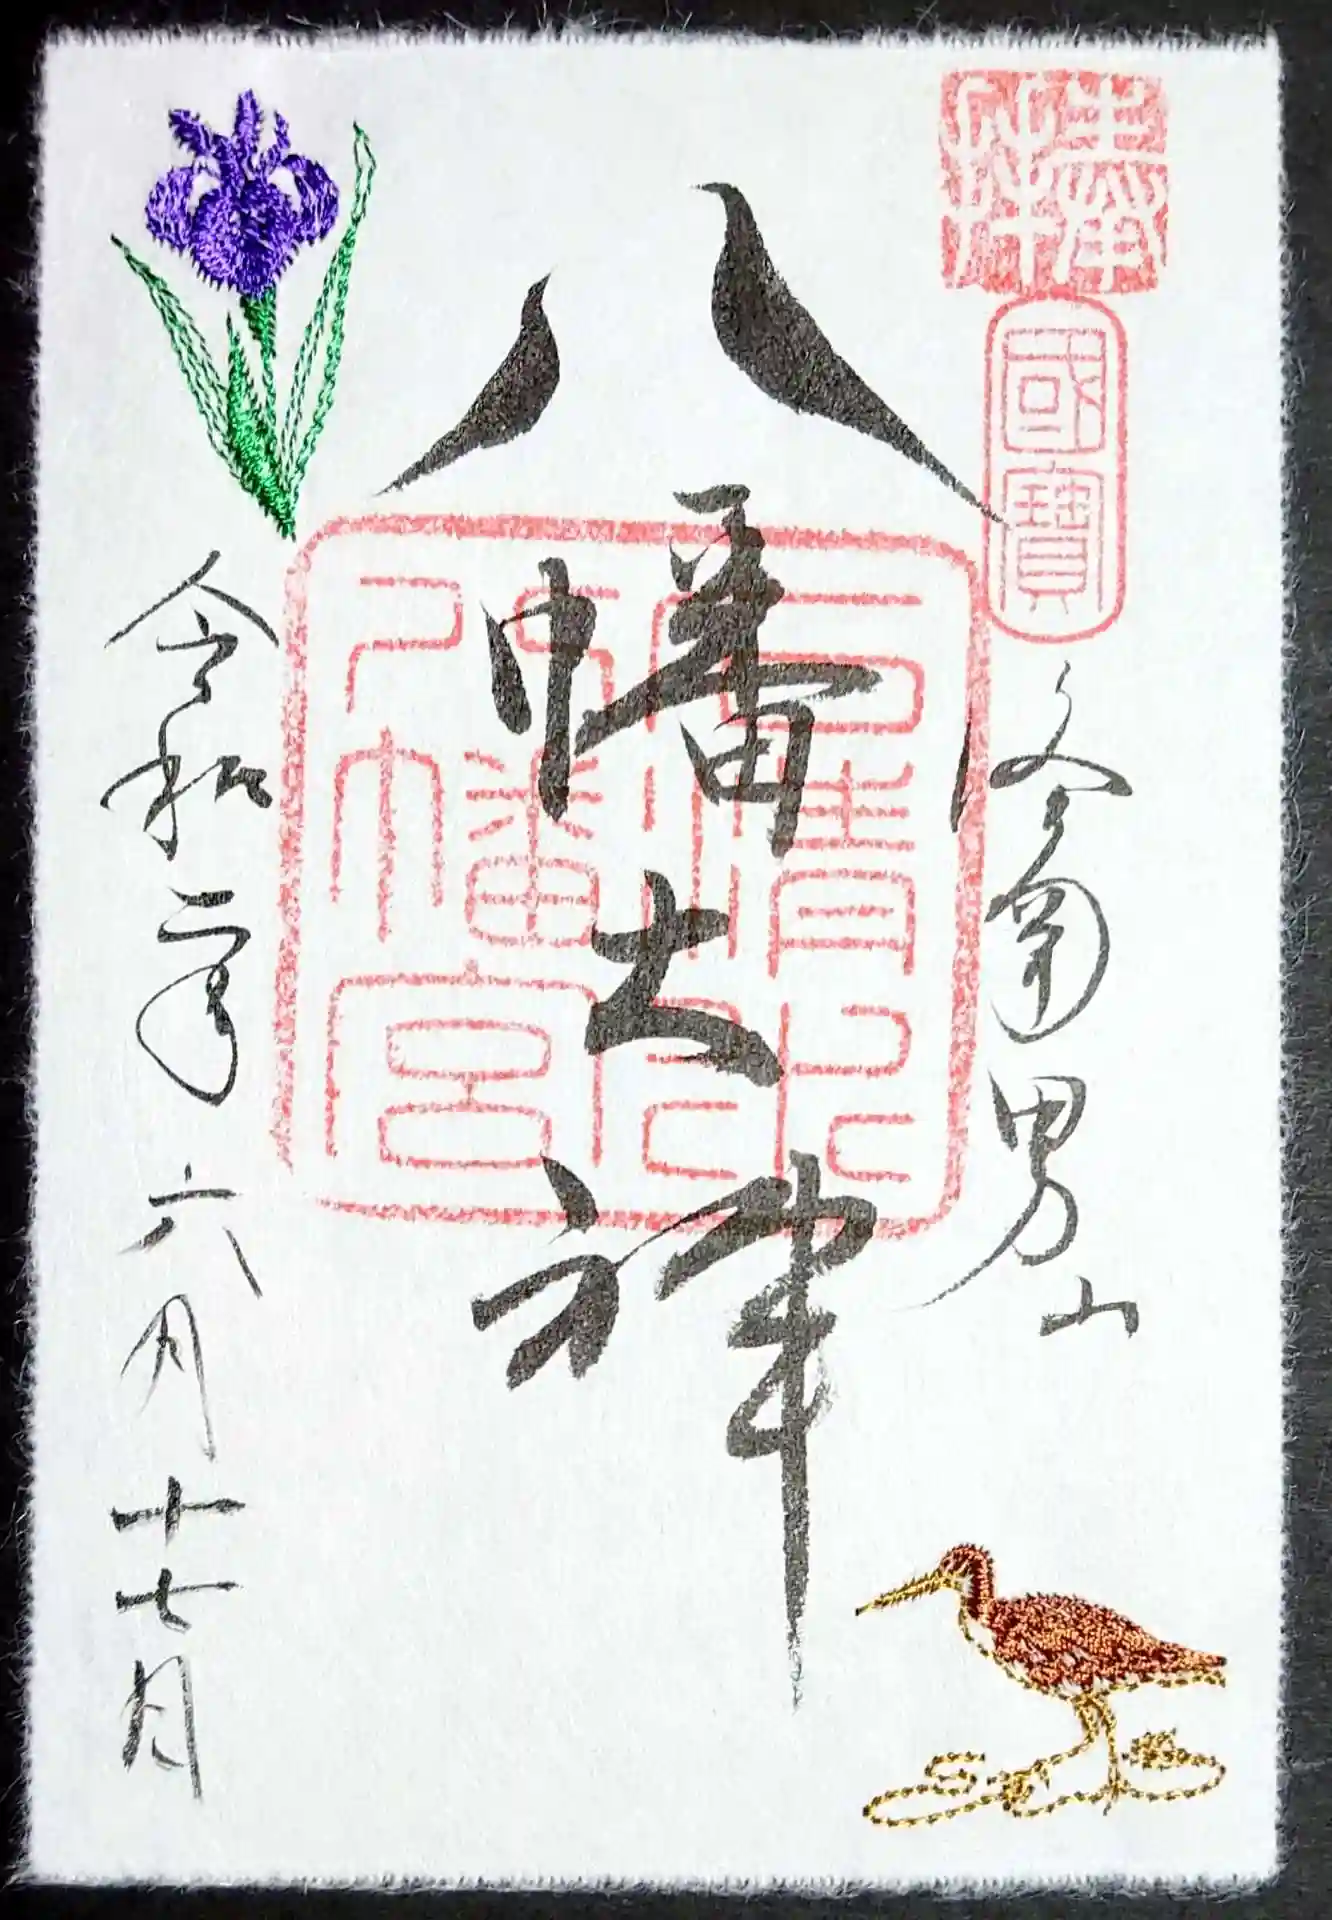 奉拝
國寶
京南男山
八幡大神
石清水
八幡宮
令和二年六月十七日